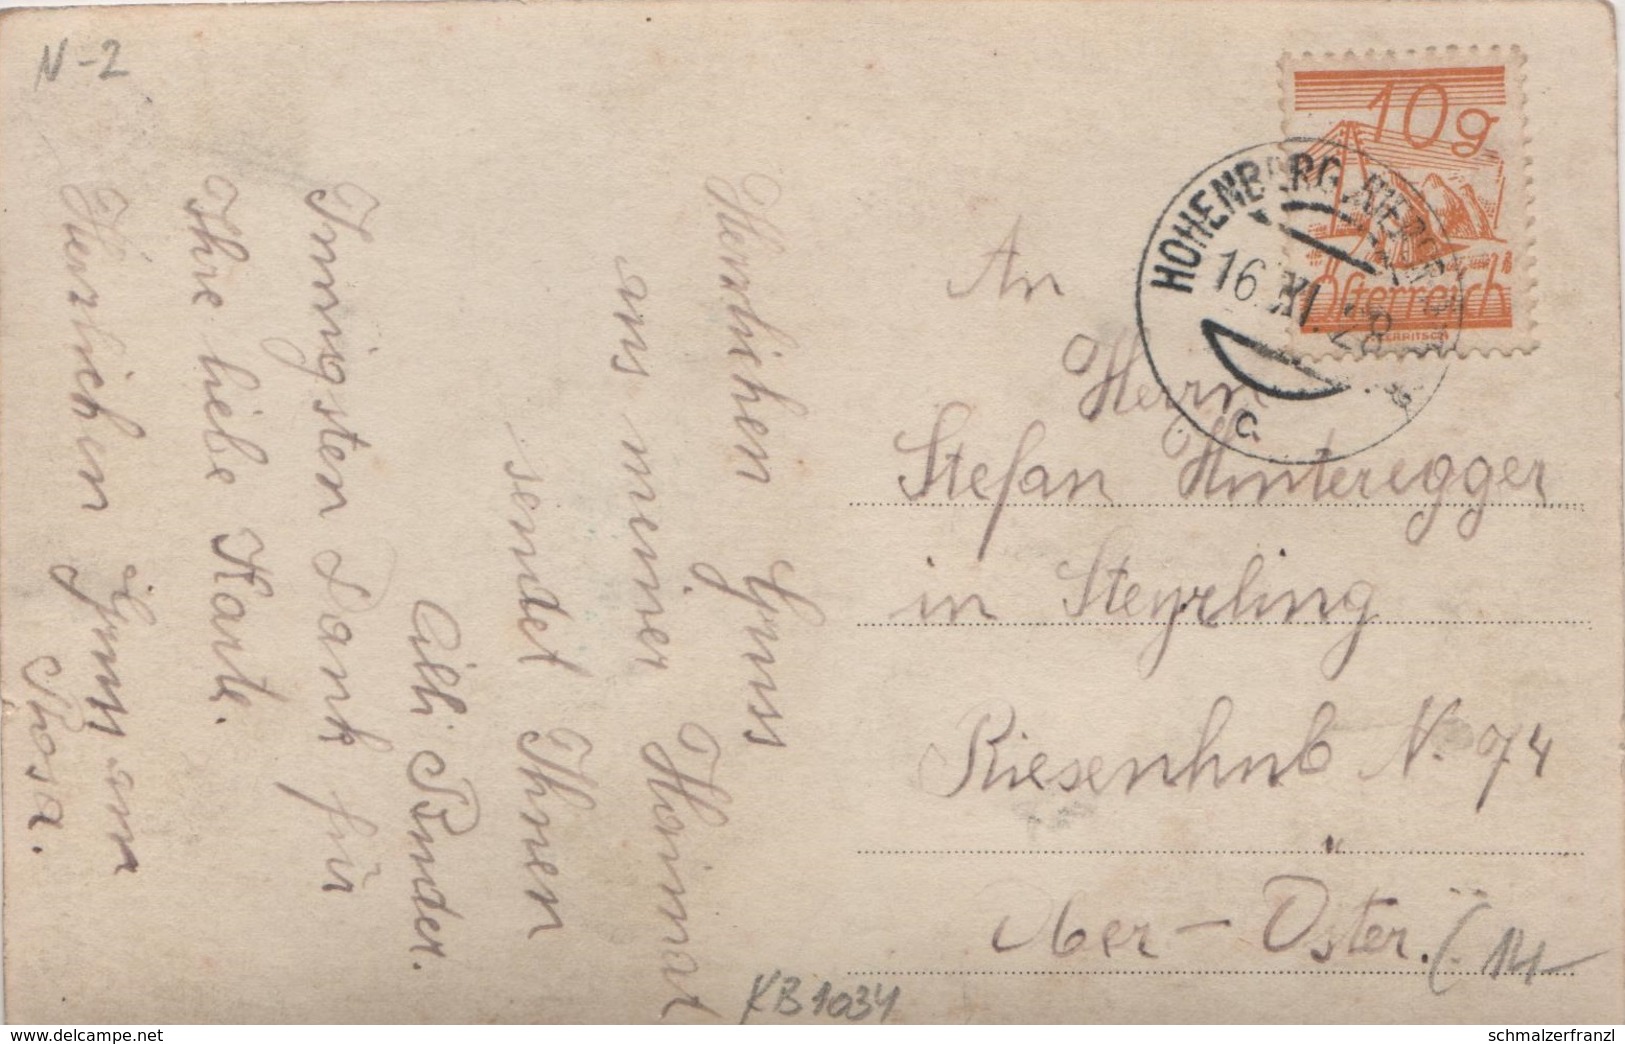 N-2
10g
Österreich
HOHENBERG, NIEDERÖ
16.XI.28
c
An
Herrn
Stefan Hinteregger
in Steyrling
Riesenhub N. 74
Ober-Öster.
(14-
Herzlichen Gruss
aus meiner Heimat
sendet Ihnen
Cilli Binder.
Innigsten Dank für
Ihre liebe Karte.
Herzlichen Gruss
Rosa.
KB1034
delcampe.net
schmalzerfranzl